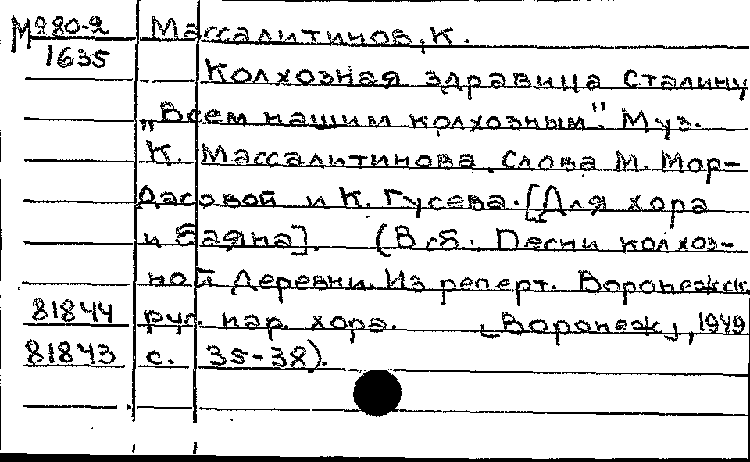 М980-2 Массалитинов, К.
1635
Колхозная здравица Сталину
„Всем нашим колхозным". Муз.
К. Массалитинова. Слова М. Мор-
дасовой и К. Гусева. [Для хора
и баяна]. (В сб.: Песни колхоз-
ной деревни. Из реперт. Воронежск.
81844 рус. нар. хора. [Воронеж], 1949
81843 с. 35-38).